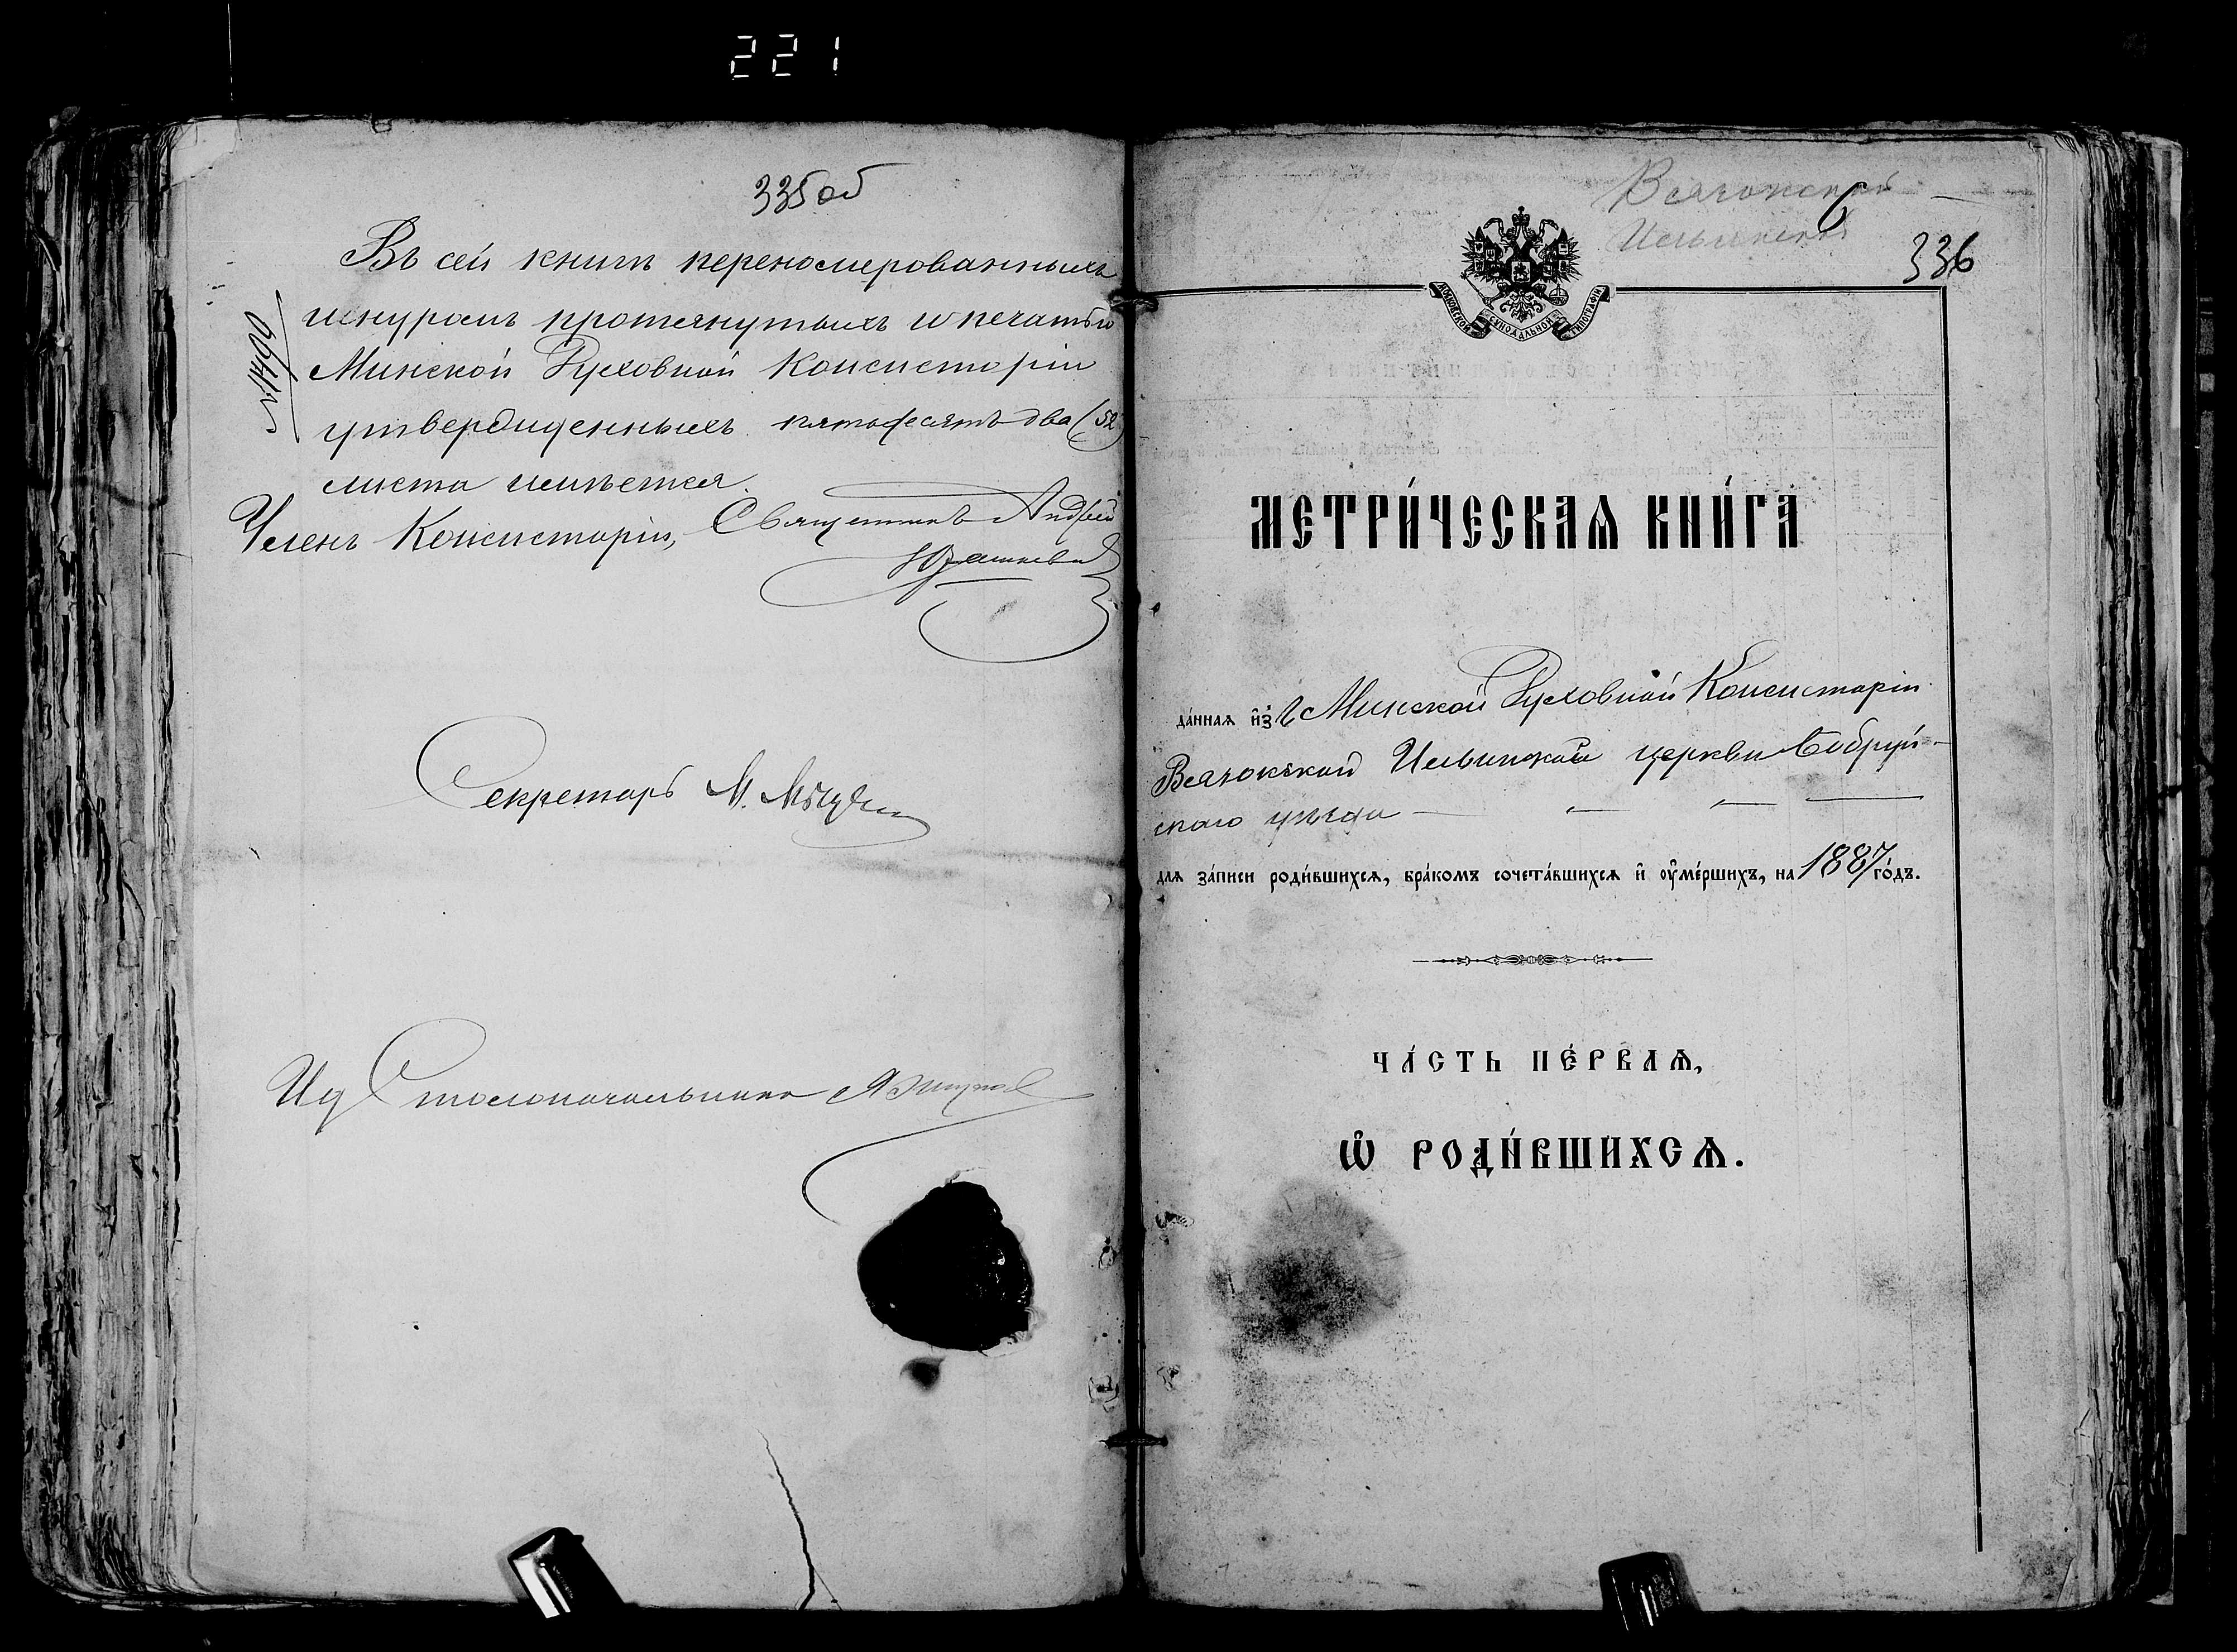 221
335 об
Въ сей книгѣ перенумерованныхъ
шнуромъ протянутыхъ и печатью
Минской Духовной Консисторіи
утвержденныхъ пятьдесятъ два (52)
листа имѣется.
Членъ Консисторіи, Священникъ Андрей
Юрашкевичъ
Секретарь М.
Ид Столоначальника
Ильинской
336
МОСКОВСКОЙ СѴНОДАЛЬНОЙ ТИПОГРАФІИ
МЕТРИ́ЧЕСКАѦ КНИ́ГА
да́ннаѧ и҆з̾ Минской Духовной Консисторіи
Ильинской церкви Бобруй-
скаго уѣзда
для за́писи роди́вшихсѧ, бра́комъ сочета́вшихсѧ и҆ ᲂу҆ме́ршихъ, на 1887 го́дъ.
ЧА́СТЬ ПЕ́РВАѦ,
Ѡ҆ РОДИ́ВШИХСѦ.